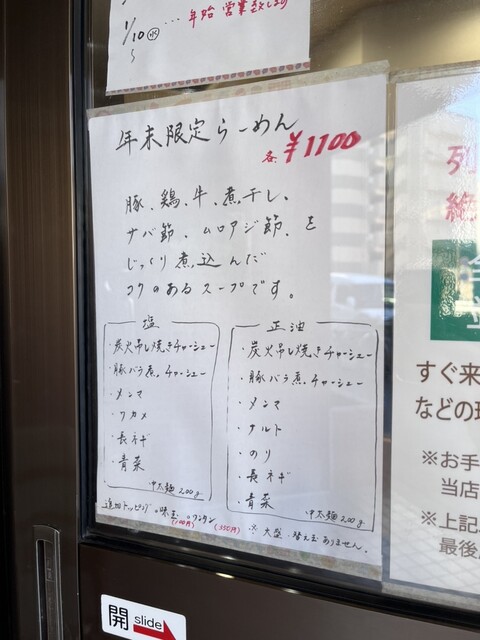 1/10㈫ … 年始 営業致します
〜
年末限定らーめん
各 ¥1100
豚、鶏、牛、煮干し、
サバ節、ムロアジ節、を
じっくり煮込んだ
コクのあるスープです。
塩
・炭火吊し焼きチャーシュー
・豚バラ煮。チャーシュー
・メンマ
・ワカメ
・長ネギ
・青菜
中太麺200g
正油
・炭火吊し焼きチャーシュー
・豚バラ煮。チャーシュー
・メンマ
・ナルト
・のり
・長ネギ
・青菜
中太麺200g
追加トッピング ○味玉(100円) ○ワンタン(350円)
※大盛、替え玉ありません。
絶
すぐ来
などの
※お手
当店
※上記
最後
開 slide